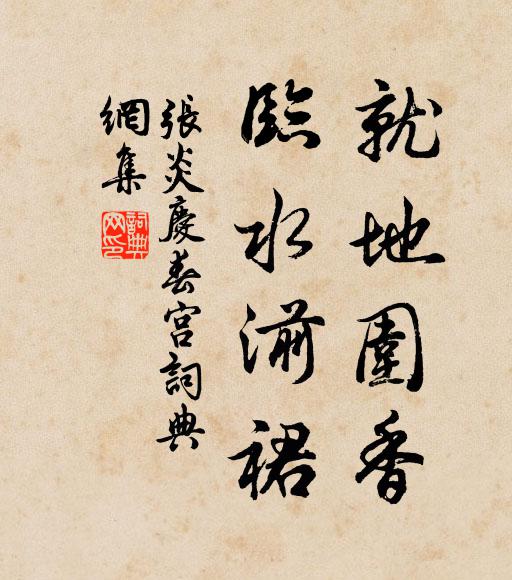 就地圍香
臨水湔裙
張炎慶春宮詞典
網集
詞典
网印